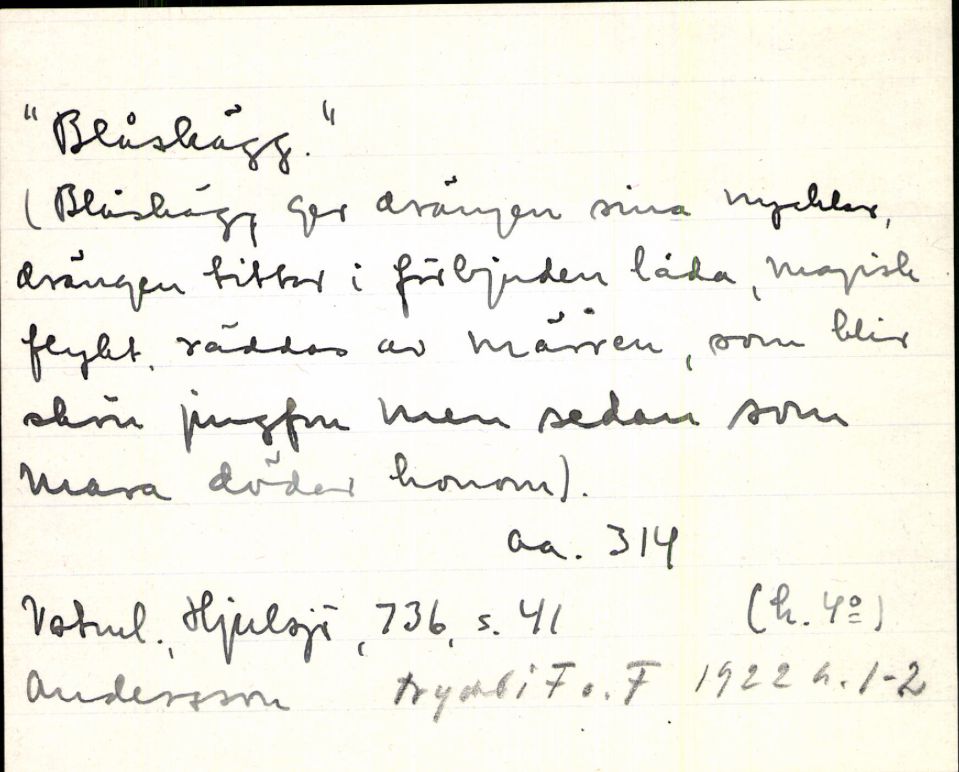 "Blåskägg."
(Blåskägg ger drängen sina nycklar,
drängen tittar i förbjuden låda, magisk
flykt, räddas av märren, som blir
skön jungfru men sedan som
mara dödar honom).
aa. 314
Vstml., Hjulsjö, 736, s. 41 (h. 4º)
Andersson tryckt i F o. F 1922 h. 1-2